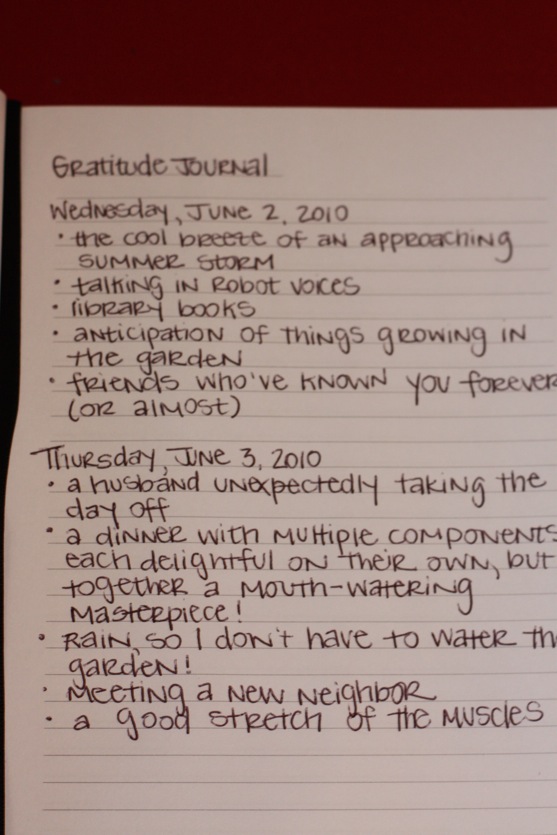 Gratitude Journal
Wednesday, June 2, 2010
• the cool breeze of an approaching
summer storm
• talking in robot voices
• library books
• anticipation of things growing in
the garden
• friends who've known you forever
(or almost)
Thursday, June 3, 2010
• a husband unexpectedly taking the
day off
• a dinner with multiple components
each delightful on their own, but
together a mouth-watering
masterpiece!
• Rain, so I don't have to water th
garden!
• Meeting a new neighbor
• a good stretch of the muscles